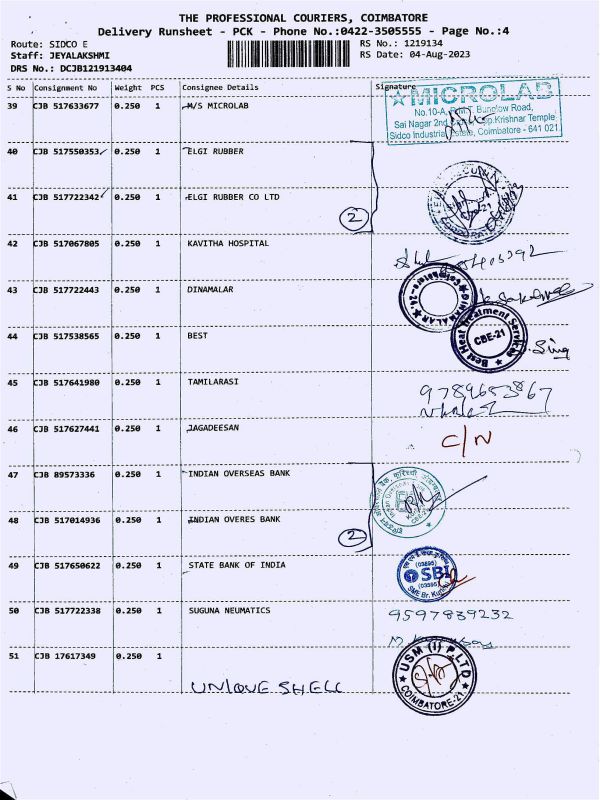 THE PROFESSIONAL COURIERS, COIMBATORE
Delivery Runsheet - PCK - Phone No.:0422-3505555 - Page No.:4
Route: SIDCO E
RS No.: 1219134
Staff: JEYALAKSHMI
RS Date: 04-Aug-2023
DRS No.: DCJB121913404
S No Consignment No Weight PCS Consignee Details Signature
39 CJB 517633677 0.250 1 M/S MICROLAB
MICROLAB
No.10-A, Bunglow Road,
Sai Nagar 2nd Opp.Krishnar Temple
Sidco Industrial Estate, Coimbatore - 641 021
40 CJB 517550353 0.250 1 ELGI RUBBER
41 CJB 517722342 0.250 1 ELGI RUBBER CO LTD
2
42 CJB 517067805 0.250 1 KAVITHA HOSPITAL
43 CJB 517722443 0.250 1 DINAMALAR
DINAMALAR Coimbatore-24
44 CJB 517538565 0.250 1 BEST
Best Heat Treatment Services
CBE-21
45 CJB 517641980 0.250 1 TAMILARASI
9789653867
46 CJB 517627441 0.250 1 JAGADEESAN
C/N
47 CJB 89573336 0.250 1 INDIAN OVERSEAS BANK
48 CJB 517014936 0.250 1 INDIAN OVERES BANK
2
49 CJB 517650622 0.250 1 STATE BANK OF INDIA
(03595)
SBI
(03595)
SME Br.
50 CJB 517722338 0.250 1 SUGUNA NEUMATICS
9597839232
51 CJB 17617349 0.250 1
UNIQUE SHELL
USM (I) P LTD
COIMBATORE-21